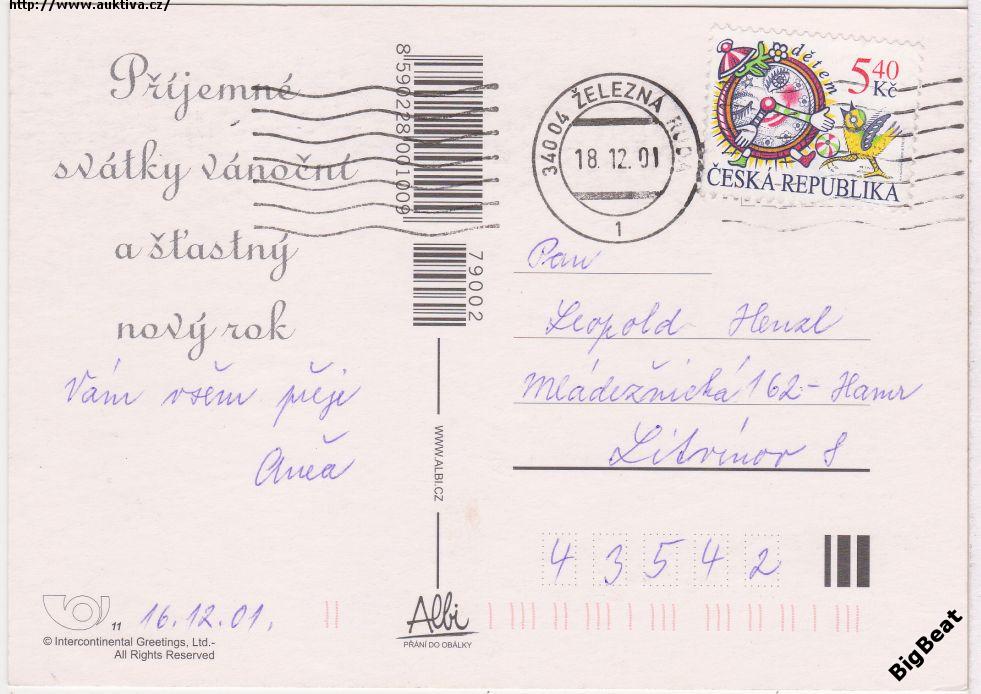 http://www.auktiva.cz/
Příjemné
svátky vánoční
a šťastný
nový rok
Vám všem přeje
Anča
16.12.01.
11
© Intercontinental Greetings, Ltd.-
All Rights Reserved
8590228001009
79002
WWW.ALBI.CZ
Albi
PŘÁNÍ DO OBÁLKY
340 04 ŽELEZNÁ RUDA
18.12.01
1
dětem
5 40
Kč
ČESKÁ REPUBLIKA
Pan
Leopold Henzl
Mládežnická 162 - Hamr
Litvínov 8
43542
BigBeat